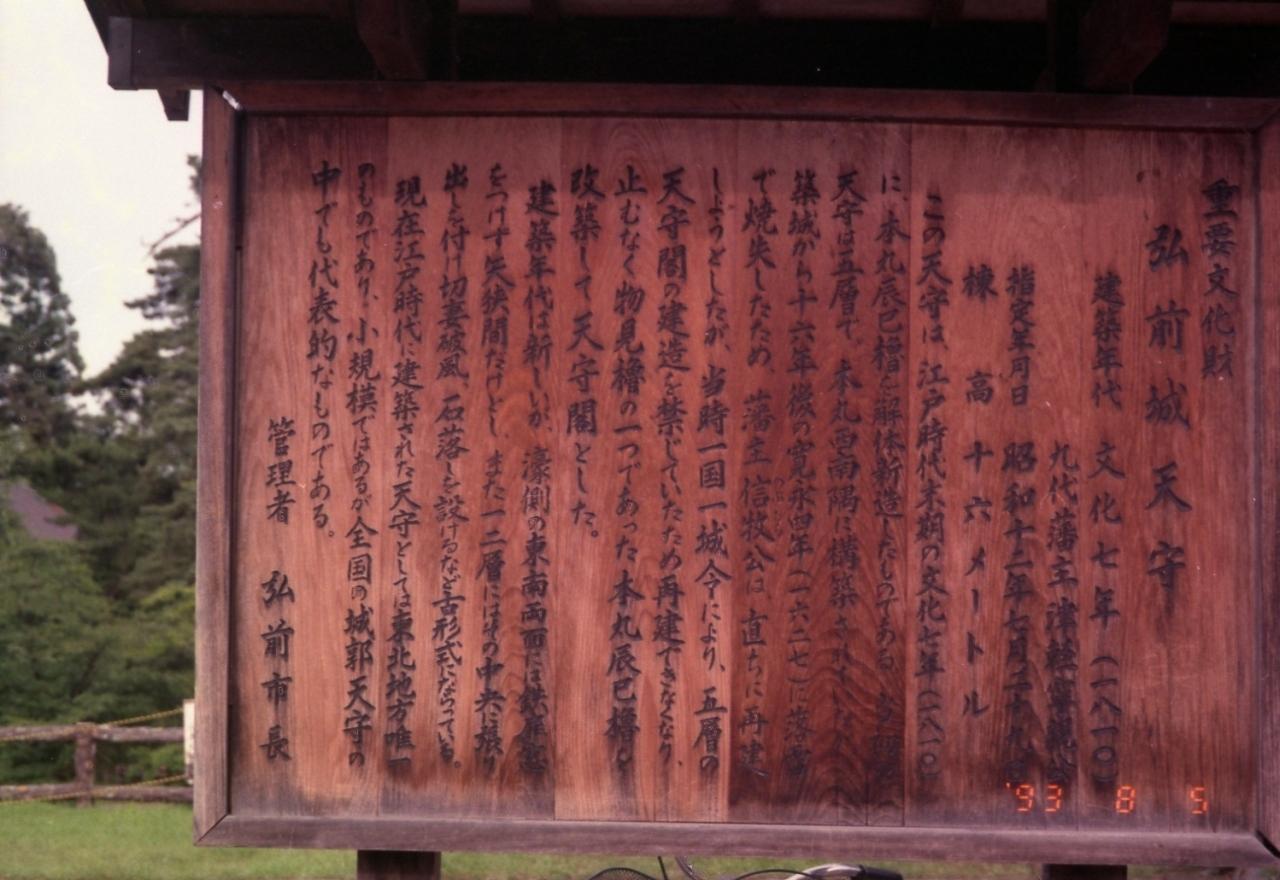 重要文化財
弘前城天守
建築年代 文化七年(一八一〇)
九代藩主津軽寧親公
指定年月日 昭和十二年七月二十九日
棟高 十六メートル
この天守は、江戸時代末期の文化七年(一八一〇)
に、本丸辰巳櫓を解体新造したものである。
天守は五層で、本丸西南隅に構築されていたが、
築城から十六年後の寛永四年(一六二七)に落雷
で焼失したため、藩主信牧公は直ちに再建
しようとしたが、当時一国一城令により、五層の
天守閣の建造を禁じていたため再建できなくなり、
止むなく物見櫓の一つであった本丸辰巳櫓を
改築して天守閣とした。
建築年代は新しいが、濠側の東南両面には鉄扉窓
をつけず矢狭間だけとし、また一二層にはその中央に張り
出しを付け切妻破風、石落しを設けるなど古形式にならっている。
現在江戸時代に建築された天守としては東北地方唯一
のものであり、小規模ではあるが全国の城郭天守の
中でも代表的なものである。
管理者 弘前市長
'93 8 5